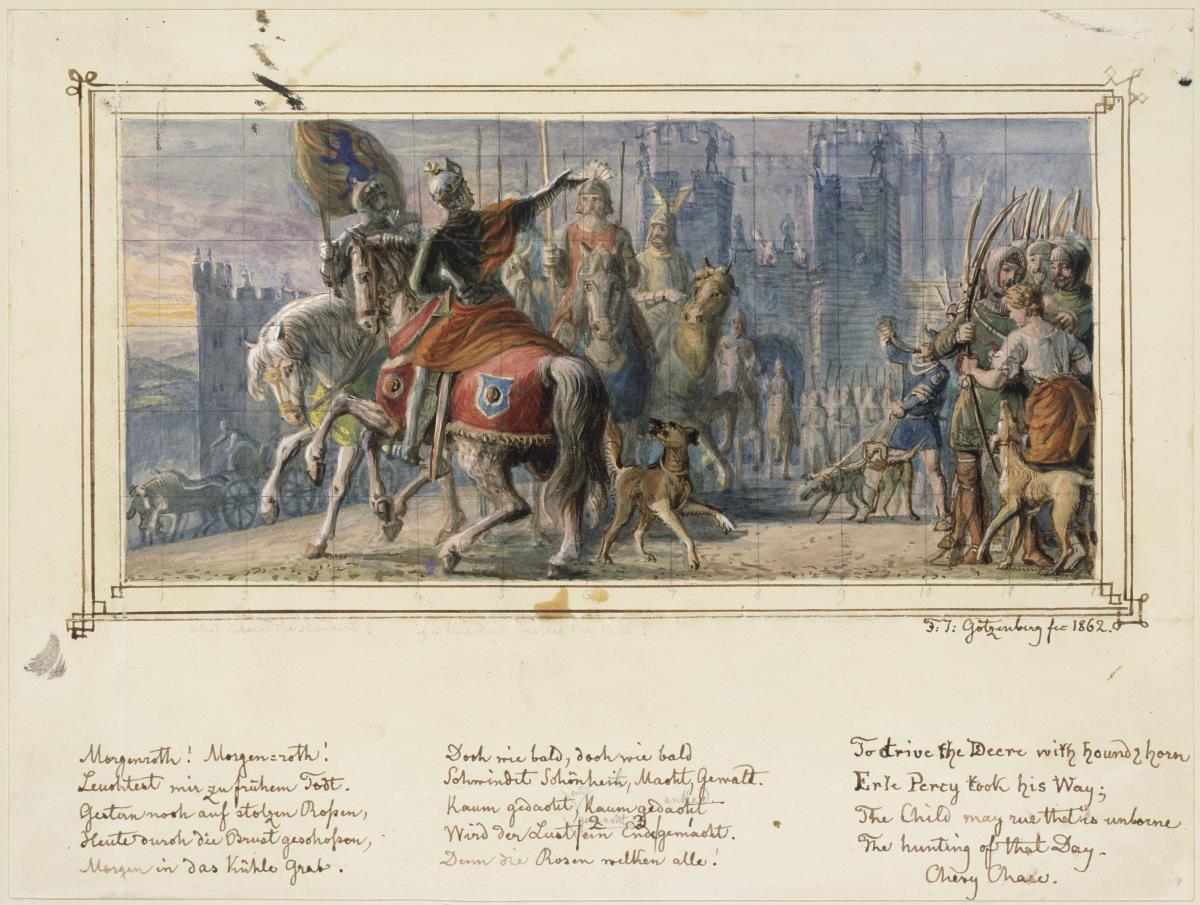 1 2 3 4 5 6 7 8 9 10 11 12
F: I: Götzenburg fec 1862.
Morgenroth! Morgen=roth!
Leuchtest mir zu frühem Todt.
Gestern noch auf stolzen Roßen,
Heute durch die Brust geschoßon,
Morgen in das kühle Grab.
Doch wie bald, doch wie bald
Schwindet Schönheit, Macht, Gewalt.
Kaum gedacht, kaum gedacht
Wird der Lust ein Ende gemacht.
Denn die Rosen welken alle!
To drive the Deere with hound & horn
Erle Percy took his Way;
The Child may rue that is unborne
The hunting of that Day.
Chevy Chase.